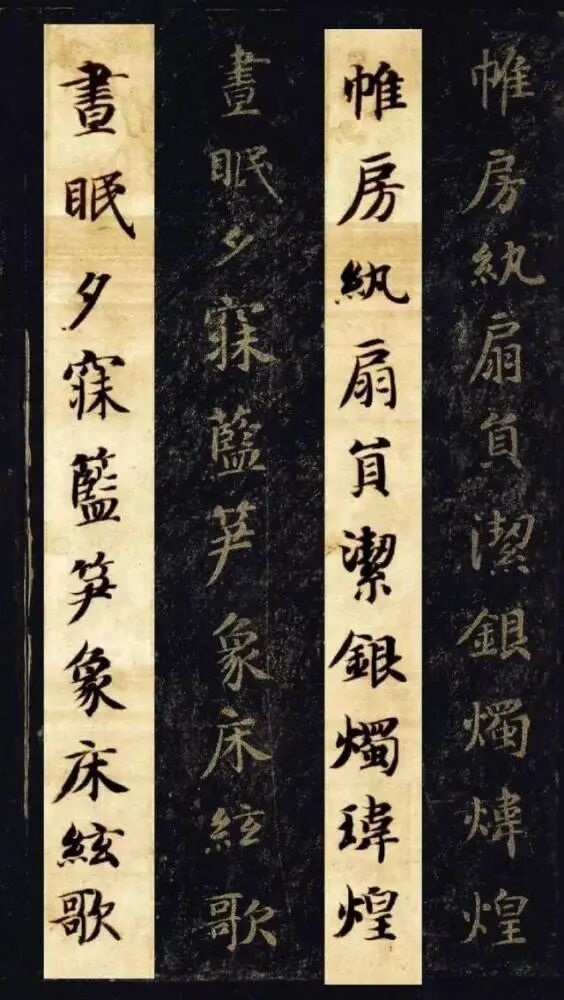 帷房紈扇員潔銀燭煒煌
帷房紈扇員潔銀燭瑋煌
晝眠夕寐藍笋象床絃歌
晝眠夕寐籃笋象床絃歌